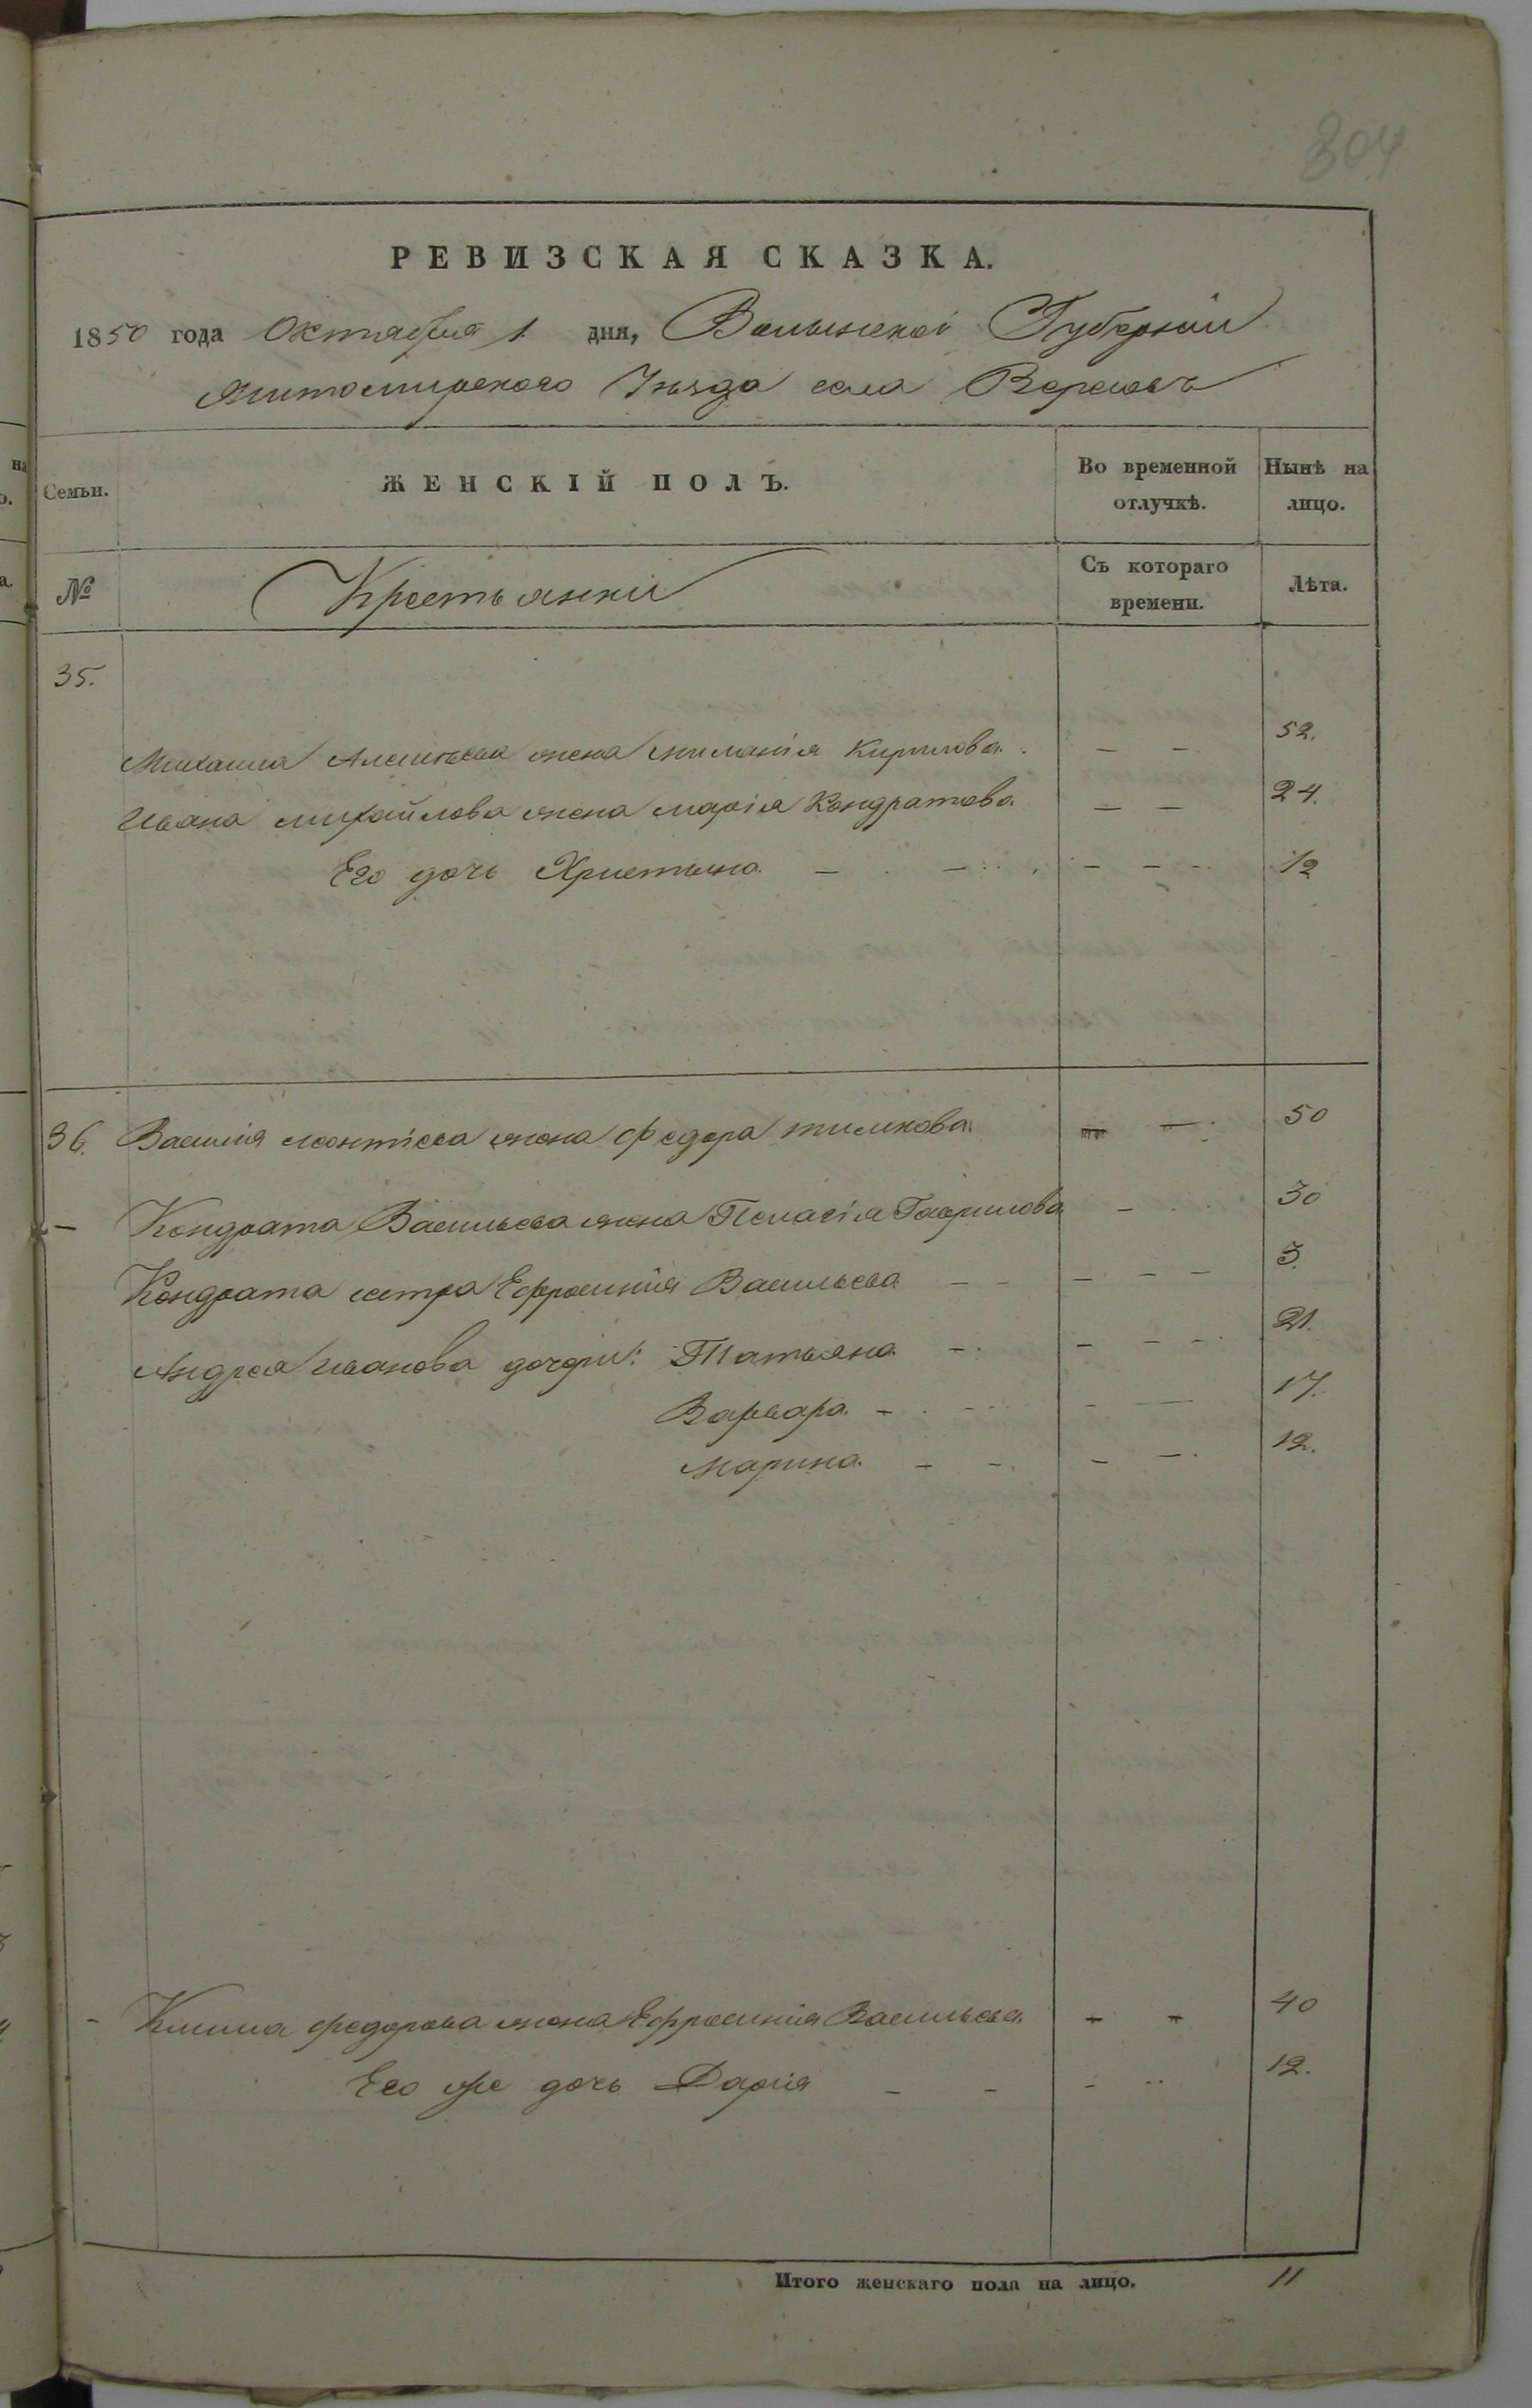 304
РЕВИЗСКАЯ СКАЗКА.
1850 года Октября 1 дня, Волынской Губернии
Житомирского Уѣзда села
Семьи. ЖЕНСКІЙ ПОЛЪ. Во временной отлучкѣ. Нынѣ на лицо.
№ Крестьянки Съ котораго времени. Лѣта.
35.
Михаила жена Кирилова. — — 52.
Ивана михайлова жена марія Кондратова — — 24.
Его дочь Христина — — — — 1/2
36. Василія леонтіева жена федора — — 50
— Кондрата Васильева жена Пелагія Гаврилова — 30
Кондрата сетра Ефросинія Васильева — — — — — 3.
Андрея иванова дочери: Татьяна — — — — 21.
Варвара. — — — — 17.
Марина. — — — — 12.
- Клима федорова жена Ефросинія Васильева. — — 40
Его же дочь Дарія — — — 12.
Итого женскаго пола на лицо. 11